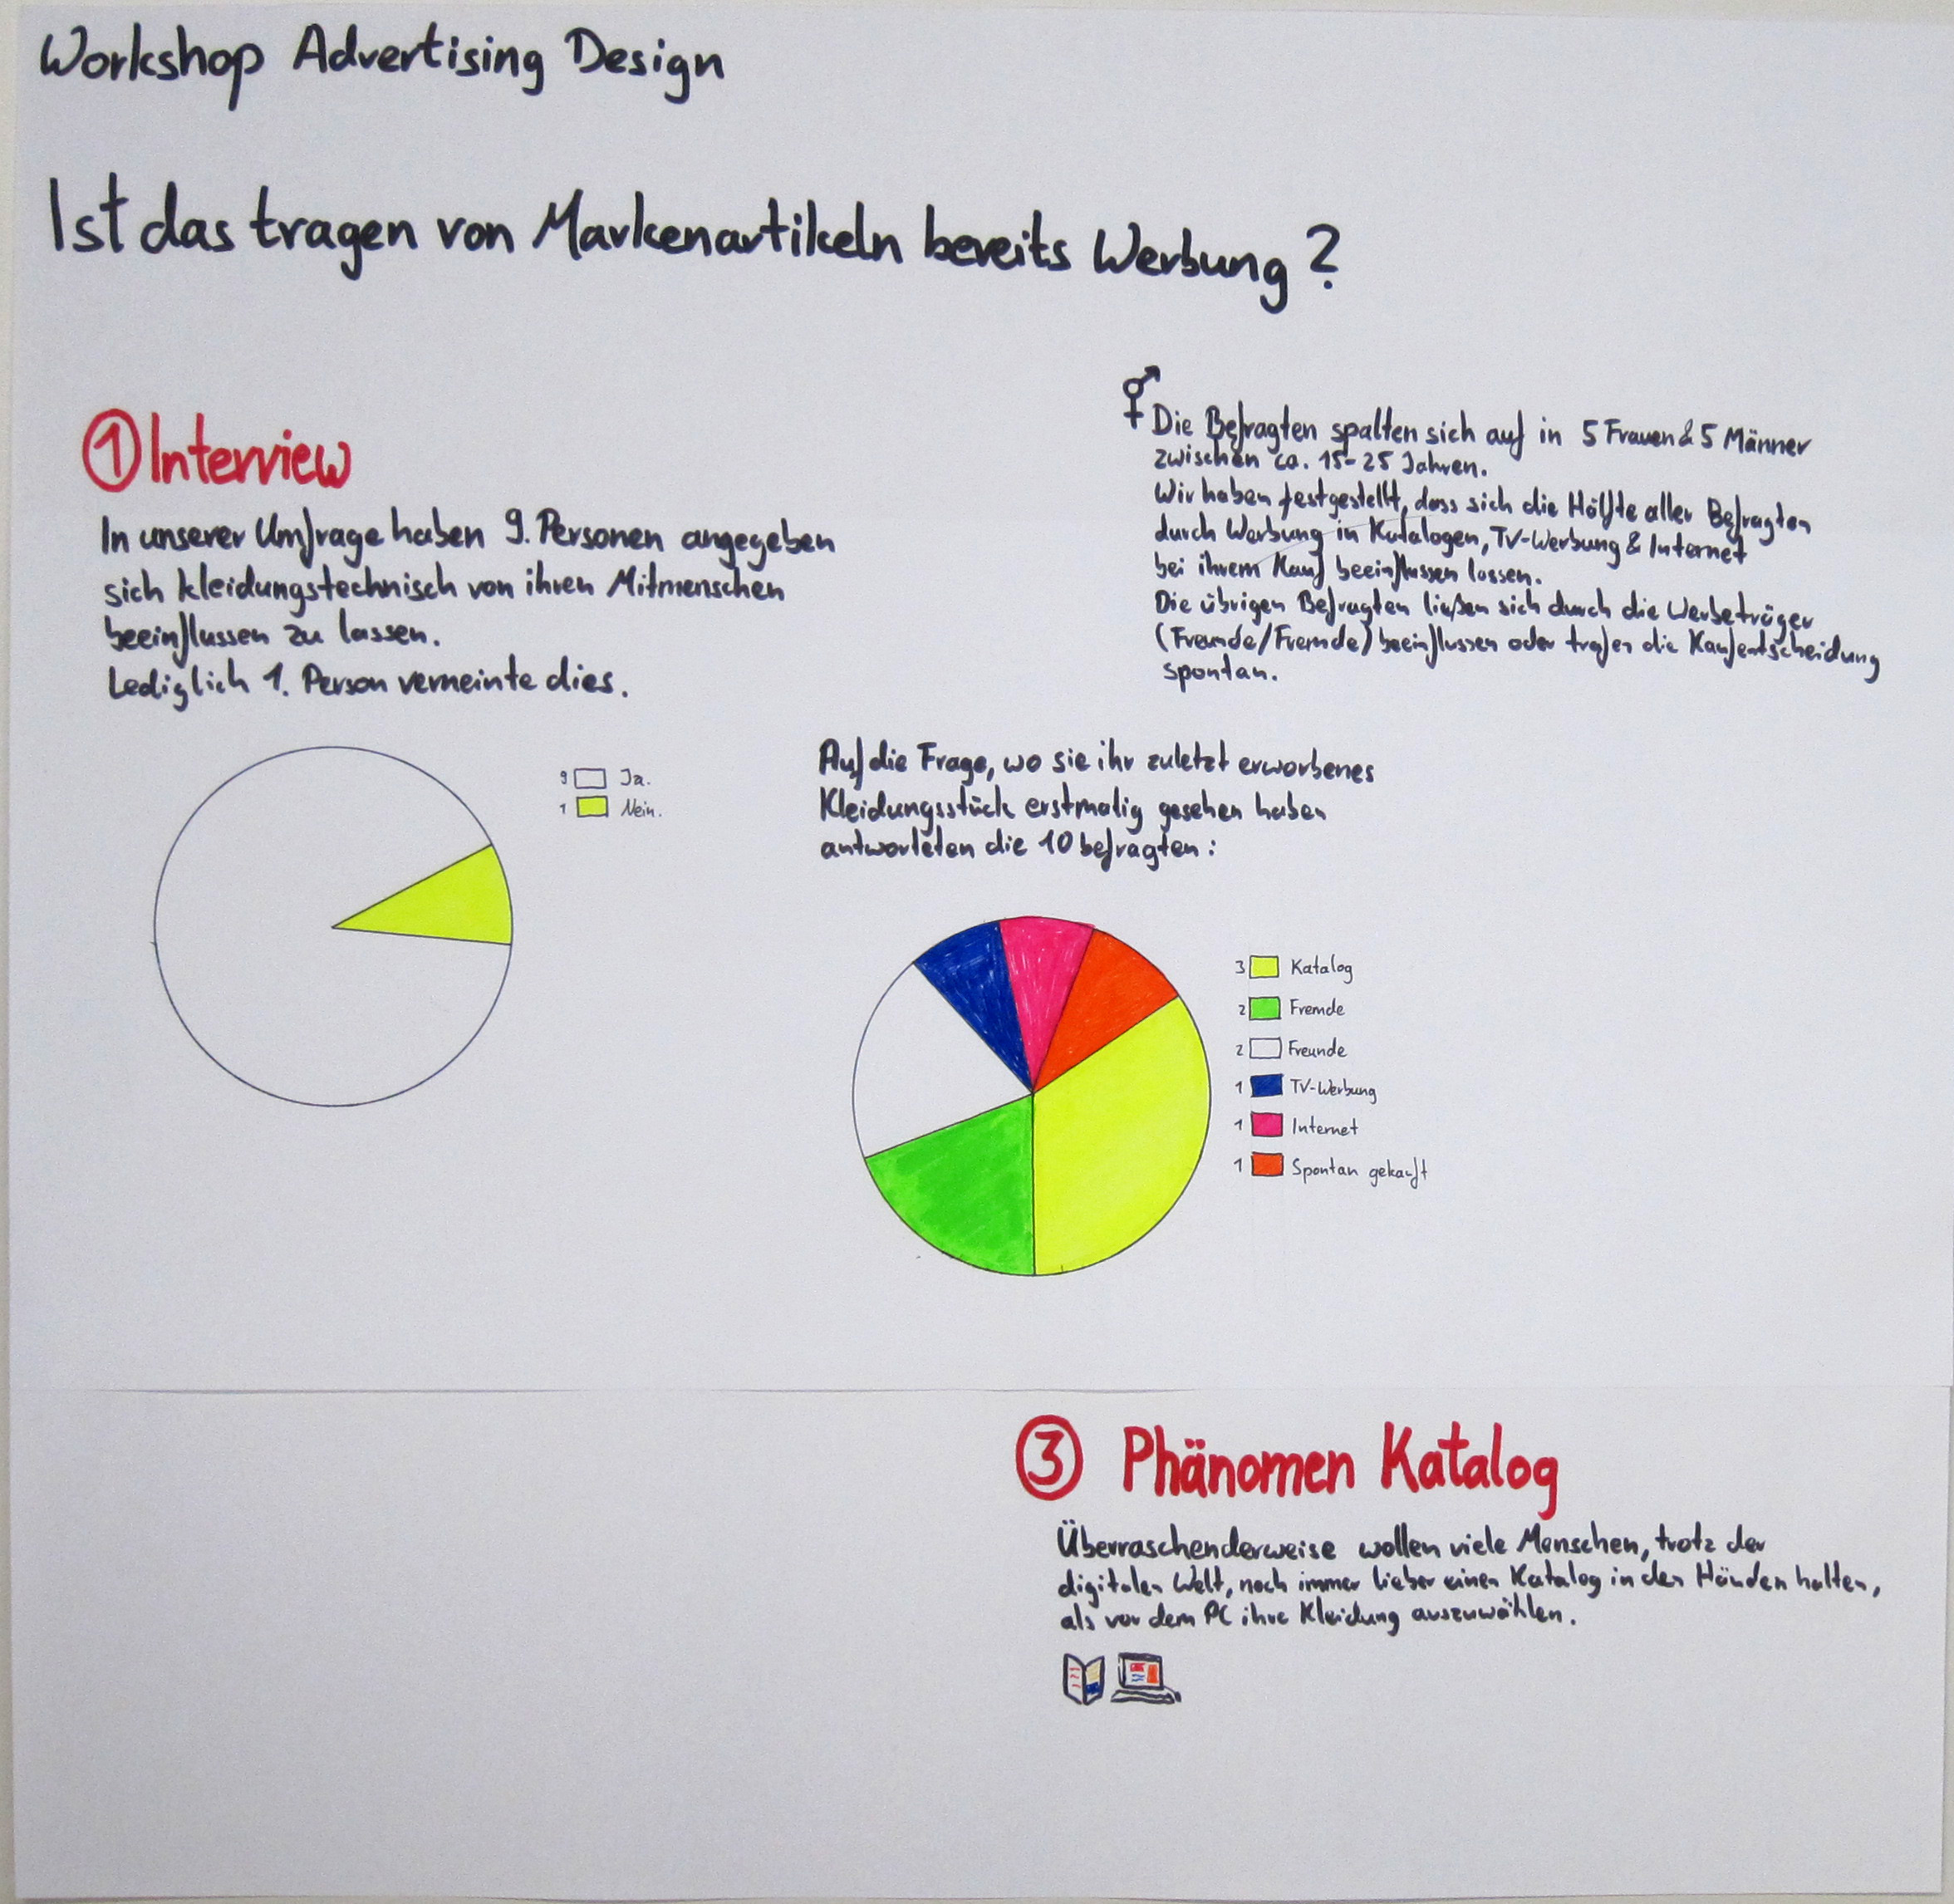 Workshop Advertising Design
Ist das tragen von Markenartikeln bereits Werbung?
① Interview
In unserer Umfrage haben 9. Personen angegeben
sich kleidungstechnisch von ihren Mitmenschen
beeinflussen zu lassen.
Lediglich 1. Person verneinte dies.
9 Ja.
1 Nein.
⚥ Die Befragten spalten sich auf in 5 Frauen & 5 Männer
zwischen ca. 15-25 Jahren.
Wir haben festgestellt, dass sich die Hälfte aller Befragten
durch Werbung in Katalogen, TV-Werbung & Internet
bei ihrem Kauf beeinflussen lassen.
Die übrigen Befragten ließen sich durch die Werbeträger
(Freunde/Fremde) beeinflussen oder trafen die Kaufentscheidung
spontan.
Auf die Frage, wo sie ihr zuletzt erworbenes
Kleidungsstück erstmalig gesehen haben
antworteten die 10 befragten:
3 Katalog
2 Fremde
2 Freunde
1 TV-Werbung
1 Internet
1 Spontan gekauft
③ Phänomen Katalog
Überraschenderweise wollen viele Menschen, trotz der
digitalen Welt, noch immer lieber einen Katalog in den Händen halten,
als vor dem PC ihre Kleidung auszuwählen.